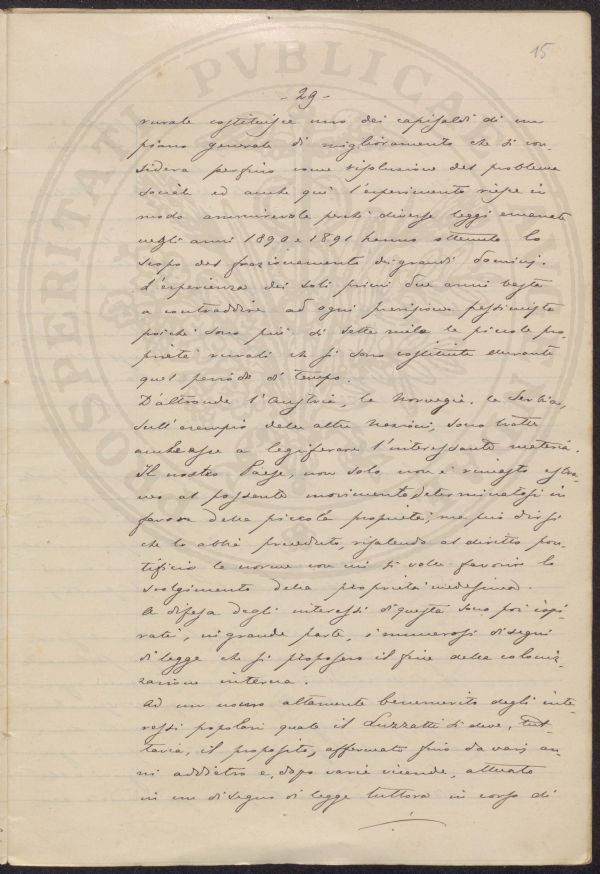 15
- 29 -
rurale costituisce uno dei capisaldi di un
piano generale di miglioramento che si con-
sidera perfino come risoluzione del problema
sociale ed anche qui l'esperimento riesce in
modo ammirevole perchè diverse leggi emanate
negli anni 1890 e 1891 hanno ottenuto lo
scopo del frazionamento di grandi dominj.
L'esperienza dei soli primi due anni basta
a contraddire ad ogni previsione pessimista
poichè sono più di sette mila le piccole pro-
prietà rurali che si sono costituite durante
quel periodo di tempo.
D'altronde l'Austria, la Norvegia, la Serbia,
sull'esempio delle altre nazioni, sono tratte
anch'esse a legiferare l'interessante materia.
Il nostro Paese, non solo non è rimasto estra-
neo al possente movimento determinatosi in
favore della piccola proprietà; ma può dirsi
che lo abbia preceduto, risalendo al diritto pon-
tificio le norme con cui si volle favorire lo
svolgimento della proprietà medesima.
A difesa degli interessi di questa sono poi ispi-
rati, in grande parte, i numerosi disegni
di legge che si proposero il fine della coloniz-
zazione interna.
Ad un uomo altamente benemerito degli inte-
ressi popolari quale il Luzzatti si deve, tut-
tavia, il proposito, affermato fino da varj an-
ni addietro e, dopo varie vicende, attuato
in un disegno di legge tuttora in corso di
PROSPERITATI PVBLICAE